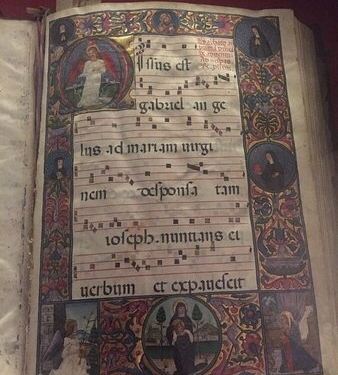 issus est
gabriel an ge
lus ad mariam uirgi
nem desponsa tam
ioseph. nuntians ei
uerbum et expauescit